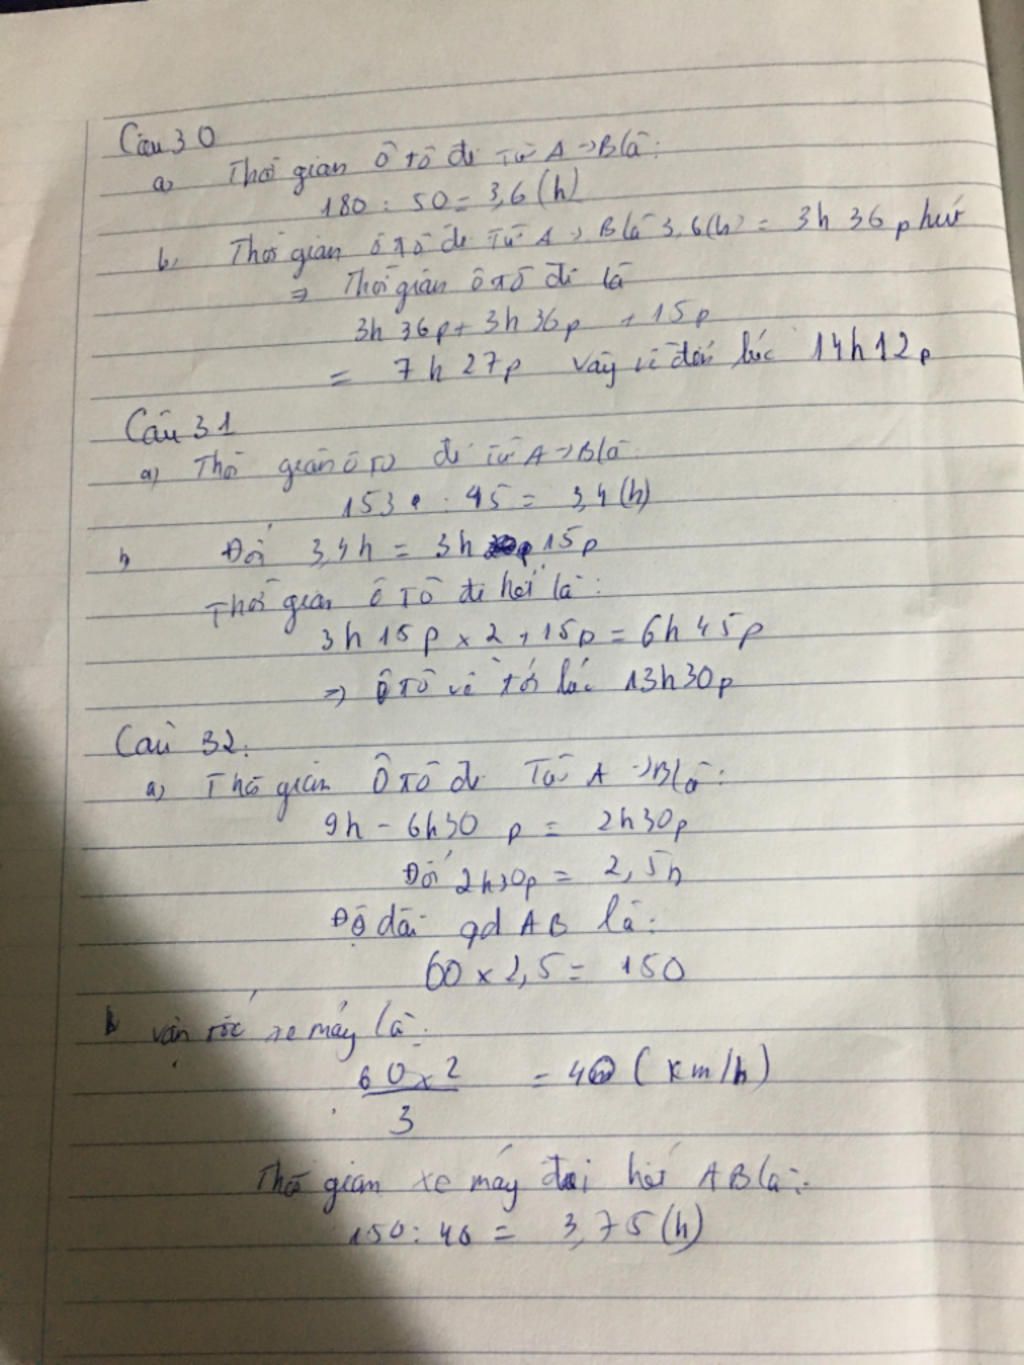 Câu 30
a) Thời gian ô tô đi từ A → B là:
180 : 50 = 3,6 (h)
b, Thời gian ô tô đi từ A → B là 3,6(h) = 3h 36 phút
⇒ Thời gian ô tô đi là
3h 36p + 3h 36p + 15p
= 7h 27p vậy về đến lúc 14h12p
Câu 31
a) Thời gian ô tô đi từ A → B là:
153 : 45 = 3,4 (h)
b, Đổi 3,4h = 3h 15p
Thời gian ô tô đi hết là:
3h 15p x 2 + 15p = 6h 45p
⇒ ô tô về tới lúc 13h30p
Câu 32:
a) Thời gian ô tô đi từ A → B là:
9h - 6h30 p = 2h30p
Đổi 2h30p = 2,5h
Độ dài qd AB là:
60 x 2,5 = 150
b vận tốc xe máy là:
60 x 2 / 3 = 40 (km/h)
Thời gian xe máy đi hết AB là:
150 : 40 = 3,75 (h)